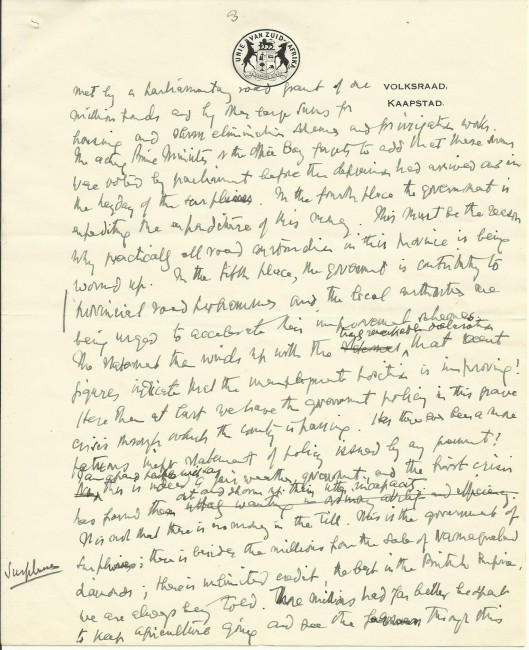 3
UNIE VAN ZUID-AFRIKA
VOLKSRAAD,
KAAPSTAD.
met by a Parliamentary road grant of one
million pounds and by other large sums for
housing and slum elimination schemes and for irrigation works.
The acting Prime Minister forgets to add that these sums
were voted by parliament before the depression had arrived and in
the heyday of the surpluses. In the fourth place the government is
expediting the expenditure of this money. This must be the reason
why practically all road construction in this Province is being
wound up. In the fifth place, the government is contributing to
provincial road programmes and the local authorities are
being urged to accelerate their improvement schemes.
The statement then winds up with the remarkable that recent
figures indicate that the unemployment position is improving!
Here then at last we have the government policy in this grave
crisis through which the country is passing. Has there ever been a more
statement of policy issued by any government!
This is indeed a fair weather government, and the first crisis
has found them utterly wanting in ordinary ability and efficiency.
It is not that there is no money in the Till. This is the government of
Surpluses
surpluses; there is besides the millions from the sale of Namaqualand
diamonds; there is unlimited credit, the best in the British Empire,
we are always being told. These millions had far better be spent
to keep agriculture going and see the through this